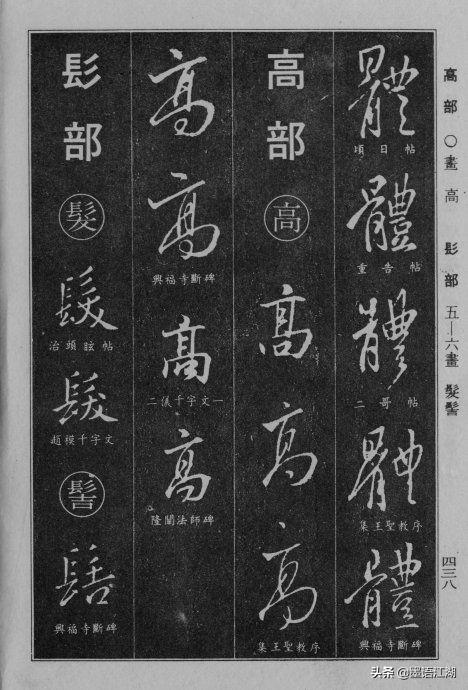 高部 〇畫 高 髟部 五—六畫 髮髻
四三八
體
頃日帖
體
重告帖
體
二哥帖
體
集王聖教序
體
興福寺斷碑
高部
高
高
高
高
集王聖教序
高
高
興福寺斷碑
高
二儀千字文一
高
隆闡法師碑
髟部
髮
髮
治頭眩帖
髮
趙模千字文
髻
髻
興福寺斷碑
头条 @墨语江湖